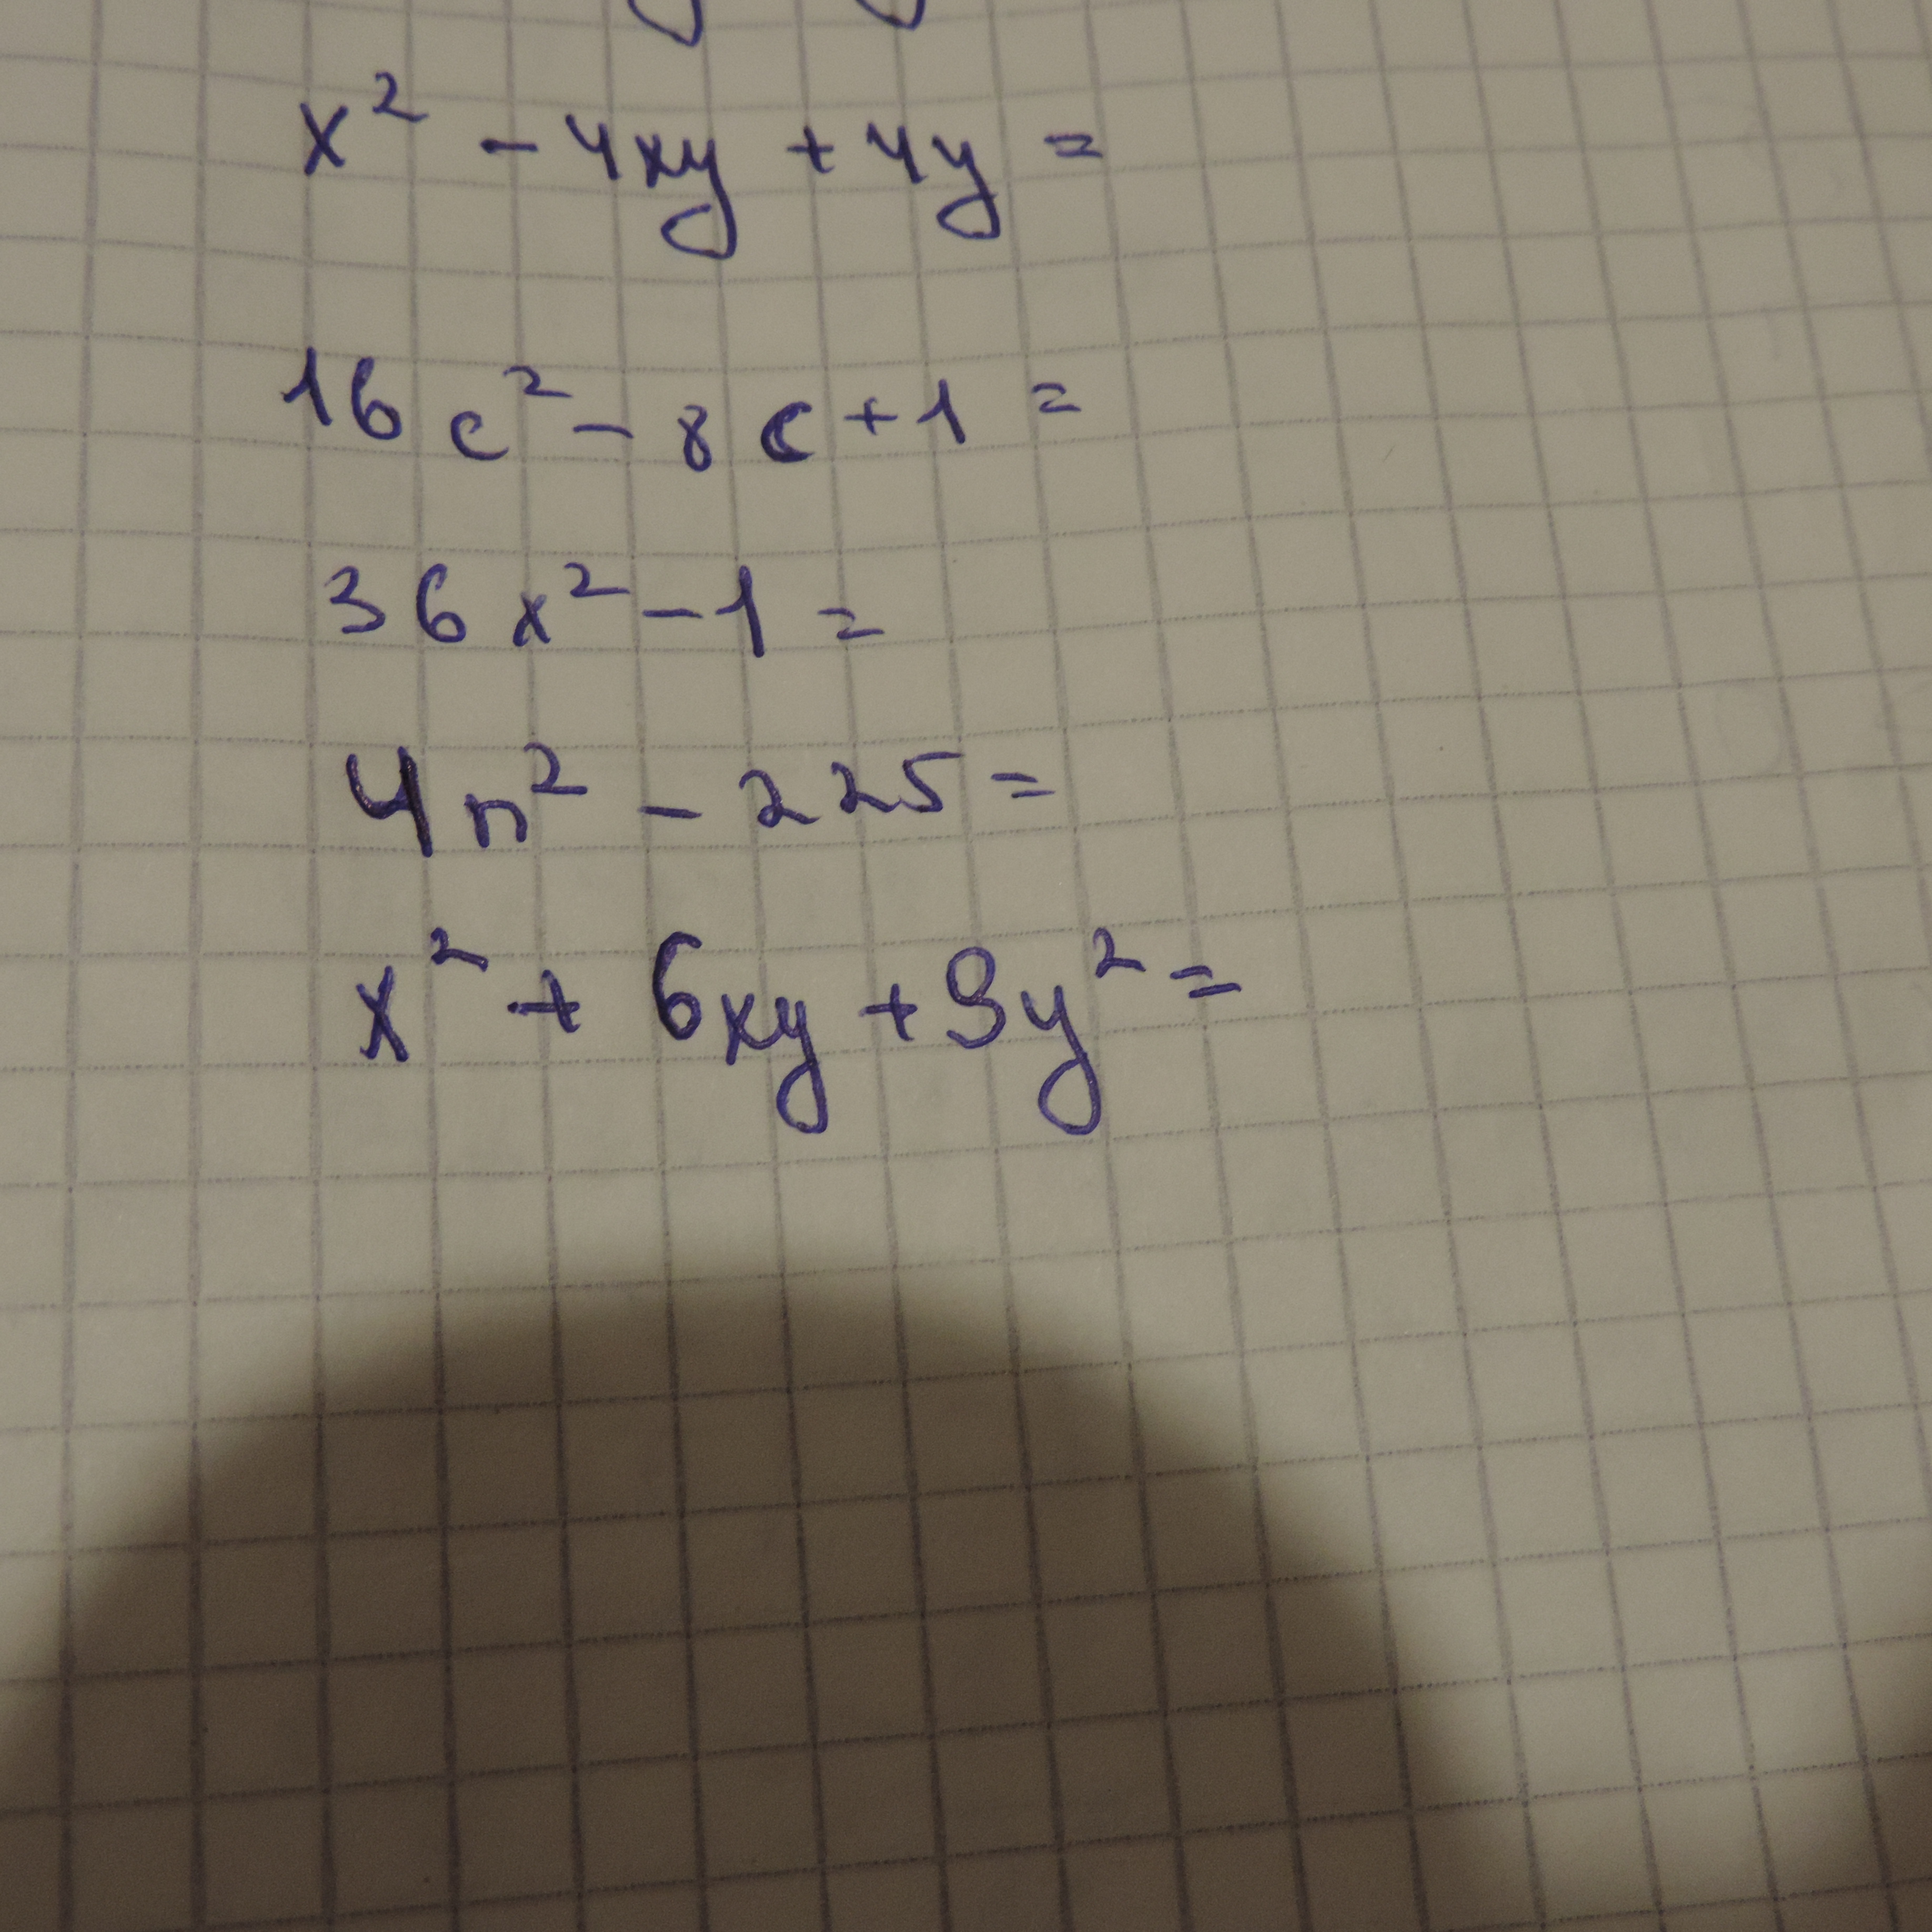 x² - 4xy + 4y =
16c² - 8c + 1 =
36x² - 1 =
4n² - 225 =
x² + 6xy + 9y² =